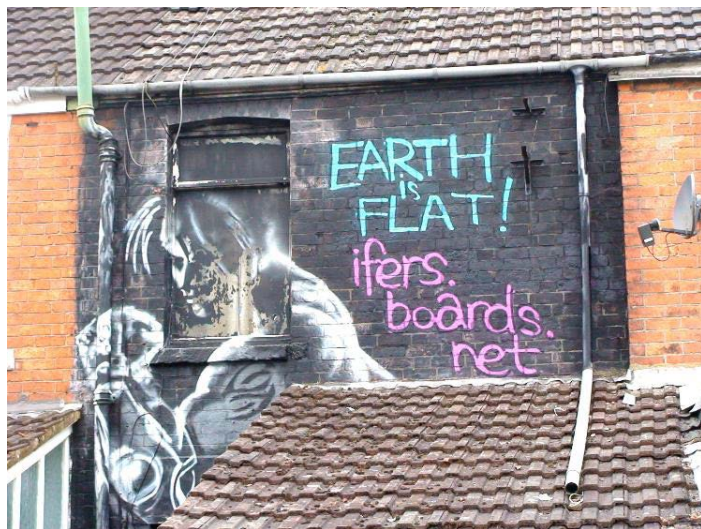 EARTH
is
FLAT!
ifers.
boards.
net